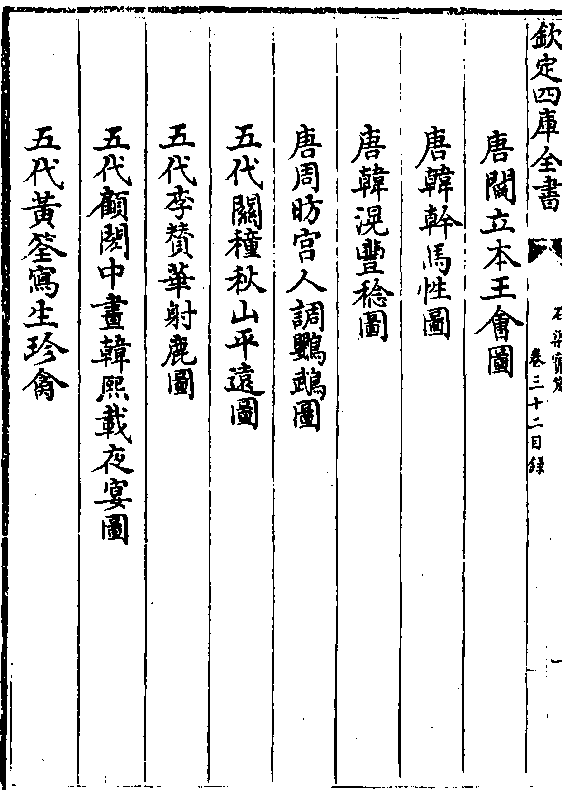 欽定四庫全書
石渠寶笈
卷三十二目録
唐閻立本王會圖
唐韓幹馬性圖
唐韓滉豐稔圖
唐周昉宫人調鸚鵡圖
五代關穜秋山平遠圖
五代李贊華射鹿圖
五代顧閎中畫韓熙載夜宴圖
五代黃筌寫生珍禽